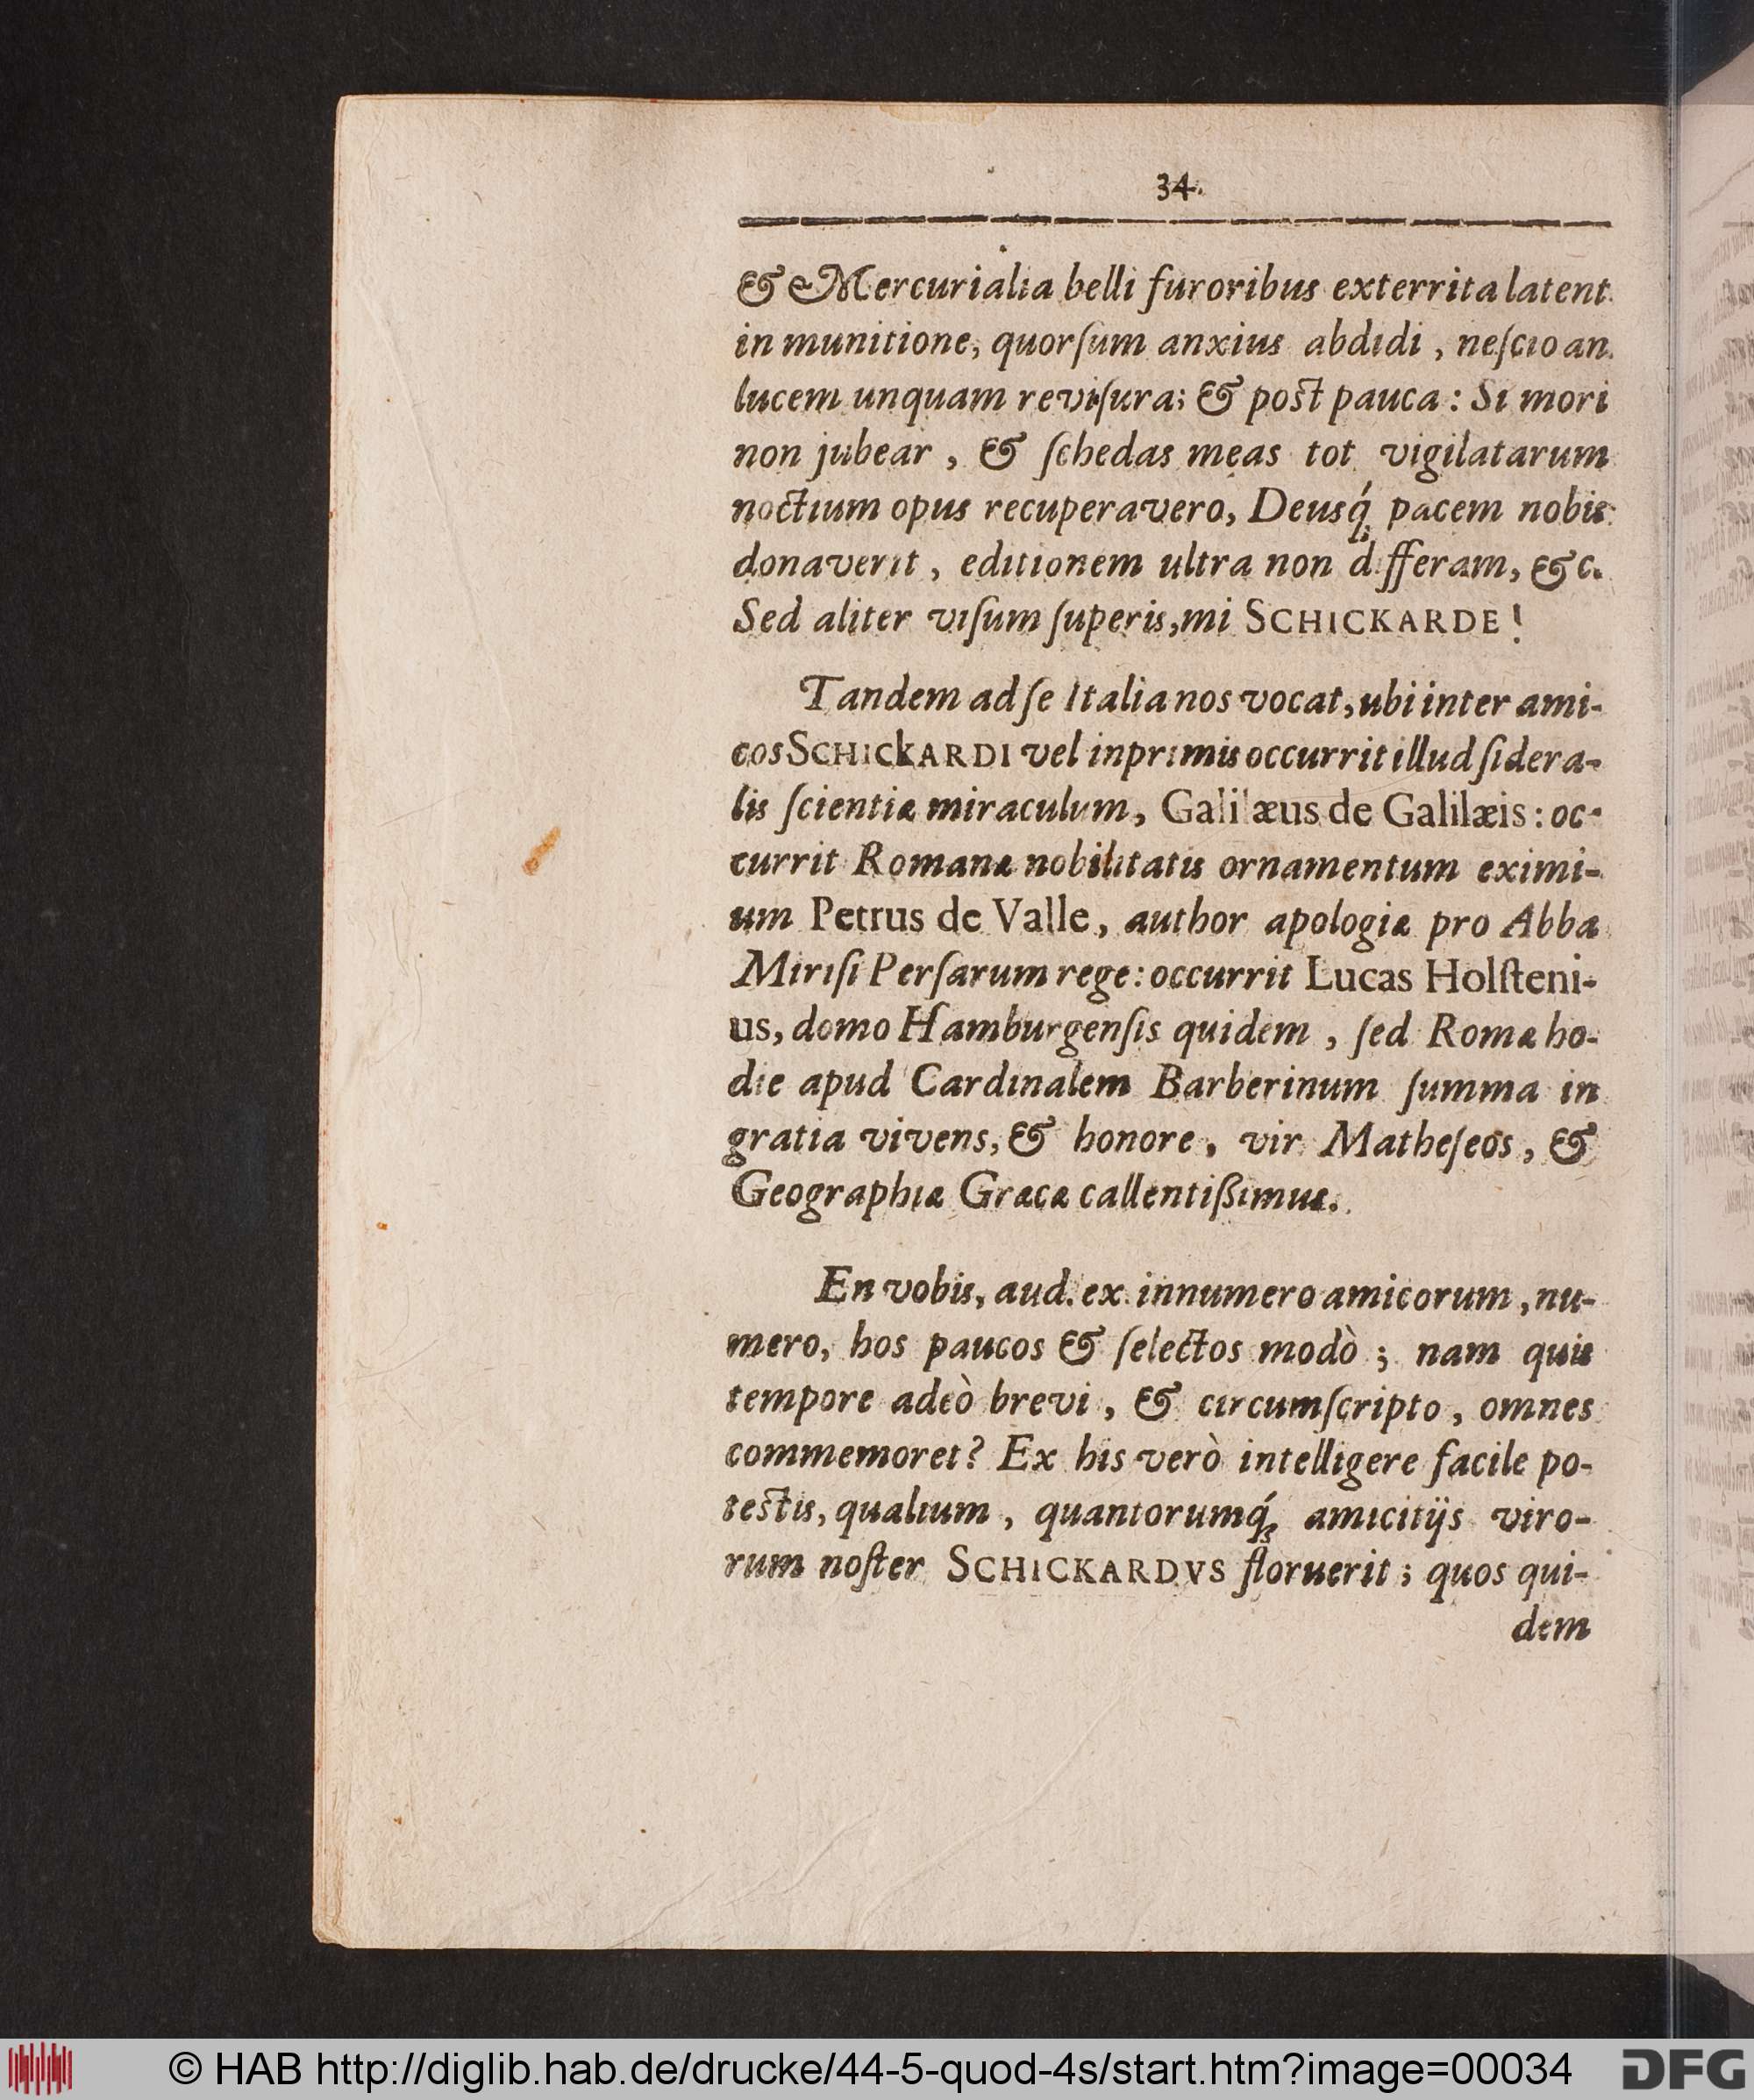 34.
& Mercurialia belli furoribus exterrita latent
in munitione, quorſum anxius abdidi, neſcio an
lucem unquam reviſura; & poſt pauca: Si mori
non jubear, & ſchedas meas tot vigilatarum
noctium opus recuperavero, Deusq́; pacem nobis
donaverit, editionem ultra non differam, &c.
Sed aliter viſum ſuperis, mi SCHICKARDE!
Tandem ad ſe Italia nos vocat, ubi inter ami-
cos SCHICkARDI vel inprimis occurrit illud ſidera-
lis ſcientiæ miraculum, Galilæus de Galilæis: oc-
currit Romanæ nobilitatis ornamentum eximi-
um Petrus de Valle, author apologiæ pro Abba
Miriſi Perſarum rege: occurrit Lucas Holſteni-
us, domo Hamburgenſis quidem, ſed Romæ ho-
die apud Cardinalem Barberinum ſumma in
gratia vivens, & honore, vir Matheſeos, &
Geographiæ Græcæ callentißimus.
En vobis, aud. ex innumero amicorum, nu-
mero, hos paucos & ſelectos modò; nam quis
tempore adeò brevi, & circumſcripto, omnes
commemoret? Ex his verò intelligere facile po-
teſtis, qualium, quantorumq́; amicitijs viro-
rum noſter SCHICKARDVS floruerit; quos qui-
dem
© HAB http://diglib.hab.de/drucke/44-5-quod-4s/start.htm?image=00034
DFG